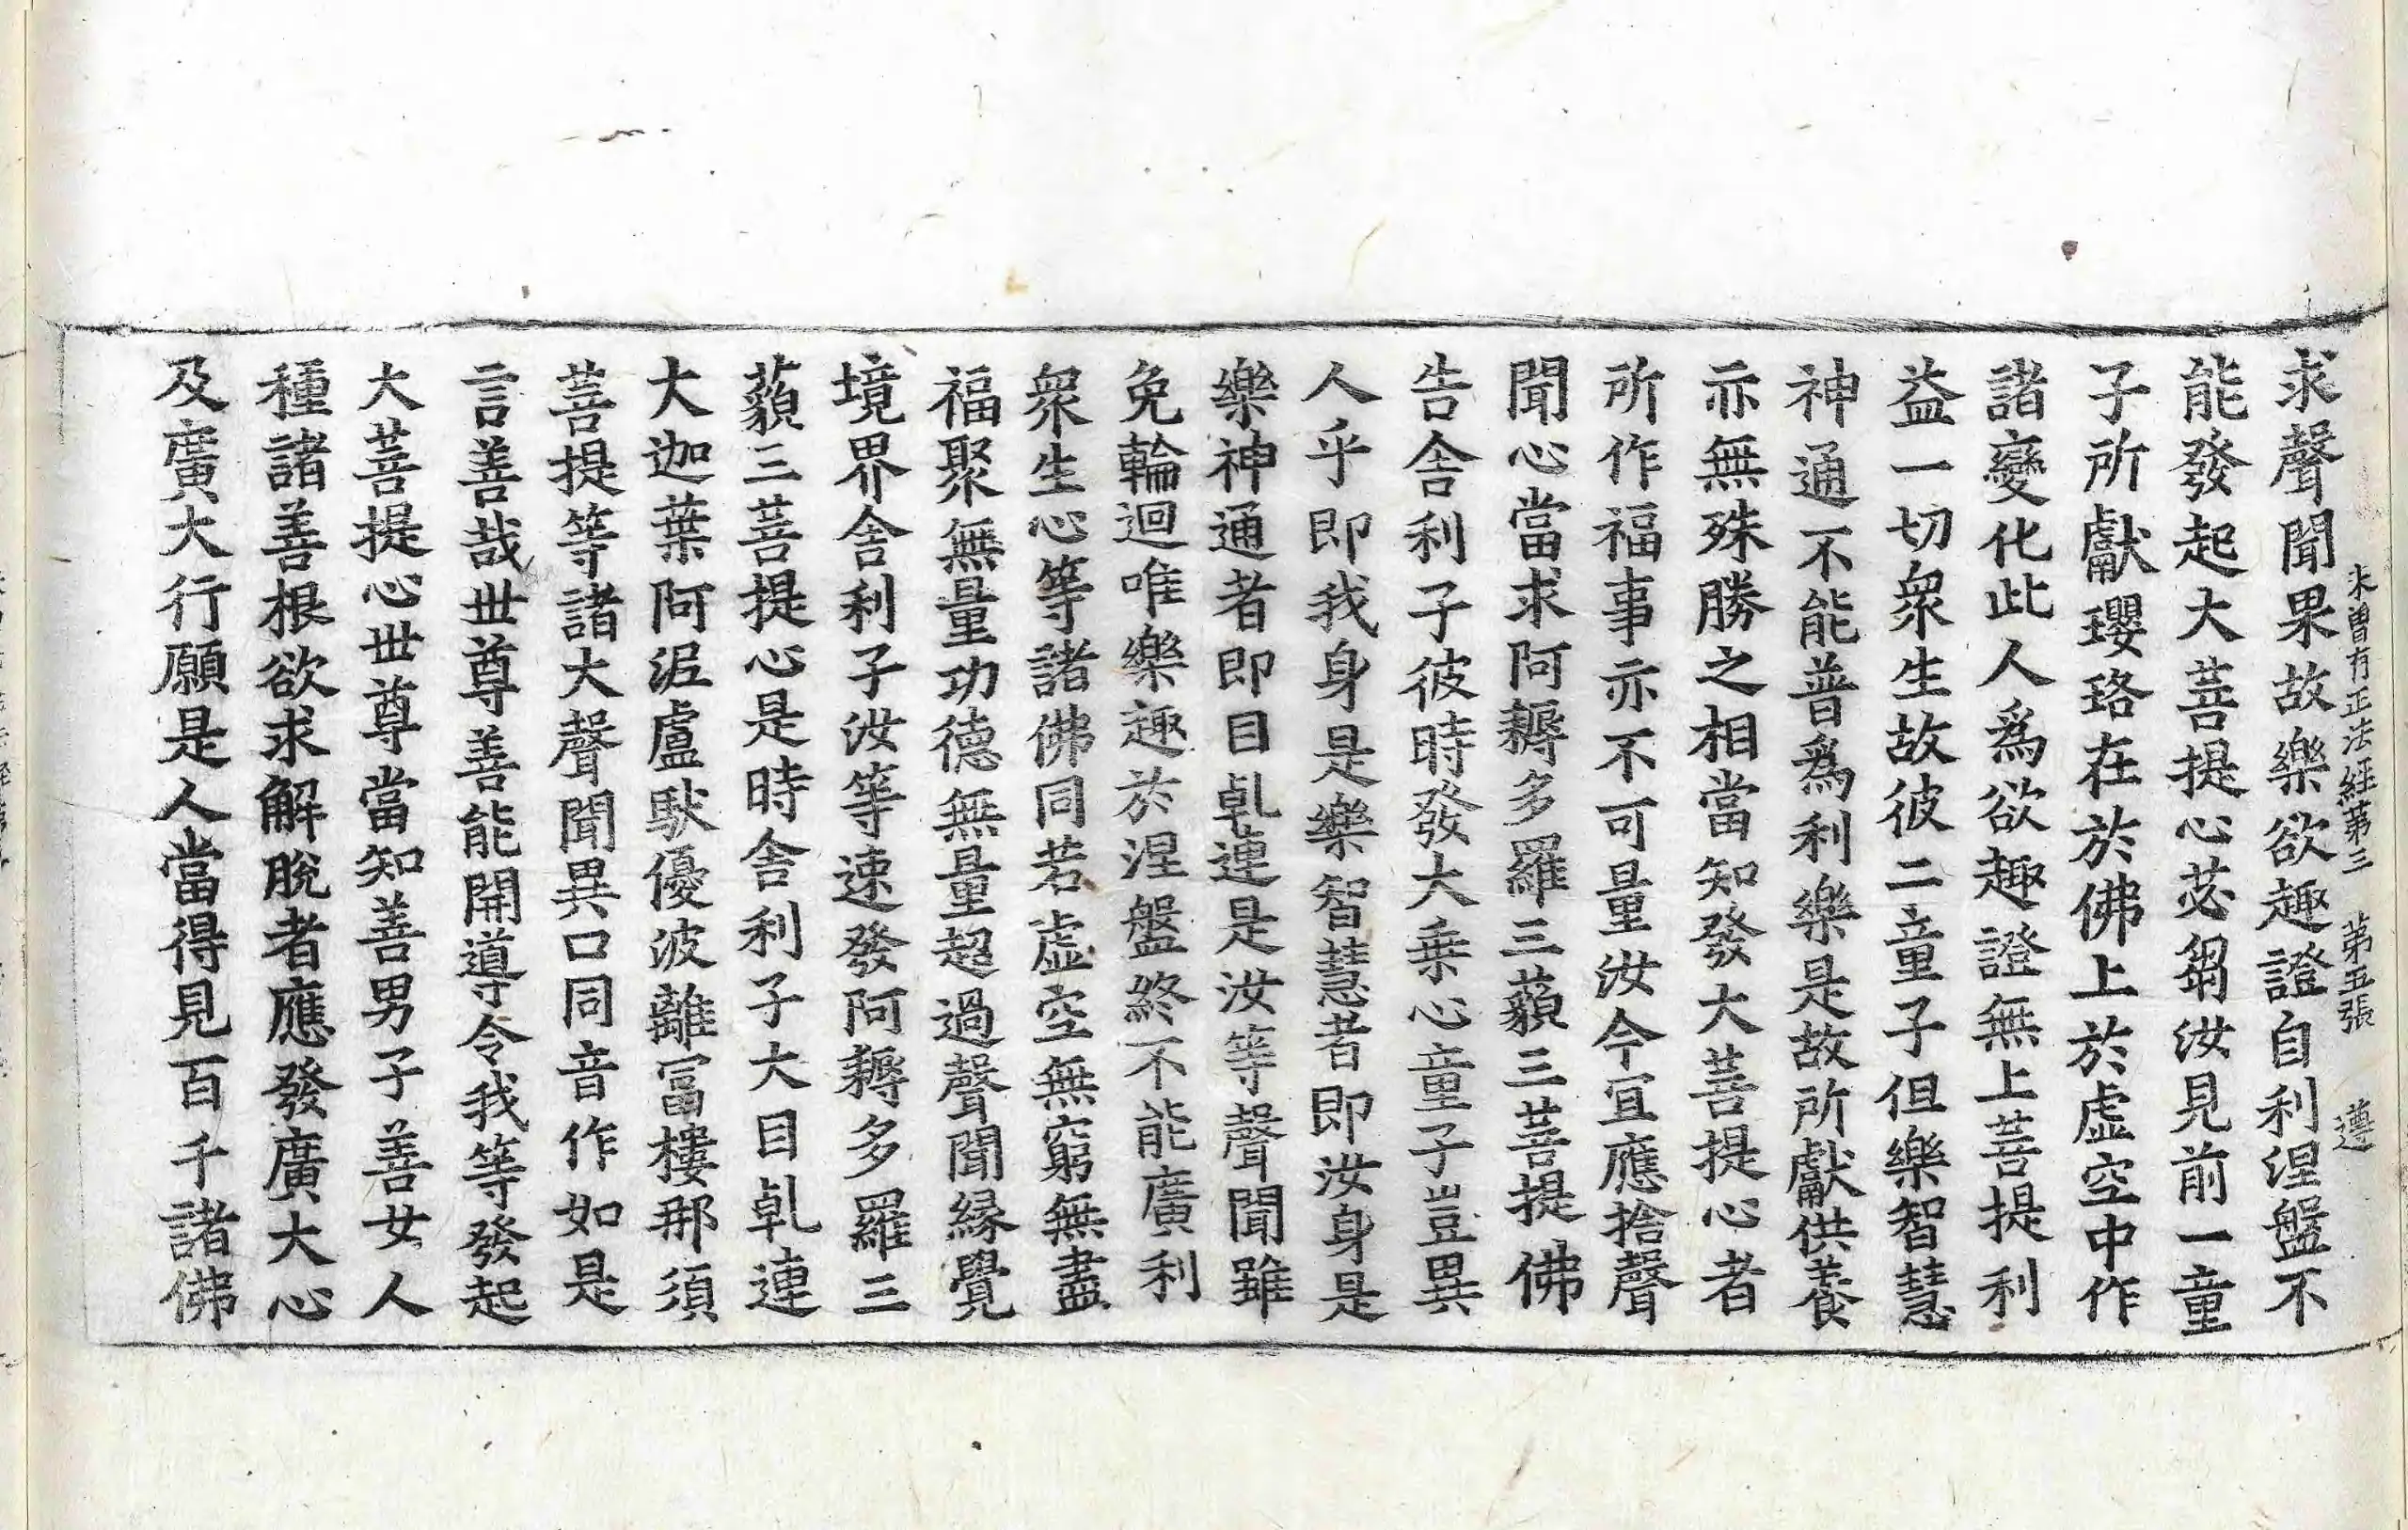 未曽有正法経苐三　苐五張　遵
求聲聞果故樂欲趣證自利涅盤不
能發起大菩提心苾芻汝見前一童
子所獻瓔珞在於佛上於虛空中作
諸變化此人爲欲趣證無上菩提利
益一切衆生故彼二童子但樂智慧
神通不能普爲利樂是故所獻供養
亦無殊勝之相當知發大菩提心者
所作福事亦不可量汝今冝應捨聲
聞心當求阿耨多羅三藐三菩提佛
告舎利子彼時發大乗心童子豈異
人乎即我身是樂智慧者即汝身是
樂神通者即目乹連是汝等聲聞雖
免輪迴唯樂趣於涅盤終不能廣利
衆生心等諸佛同若虛空無窮無盡
福聚無量功德無量超過聲聞縁覺
境界舎利子汝等速發阿耨多羅三
藐三菩提心是時舎利子大目乹連
大迦葉阿泥盧馱優波離冨樓那須
菩提等諸大聲聞異口同音作如是
言善哉世尊善能開導令我等發起
大菩提心世尊當知善男子善女人
種諸善根欲求解脫者應發廣大心
及廣大行願是人當得見百千諸佛